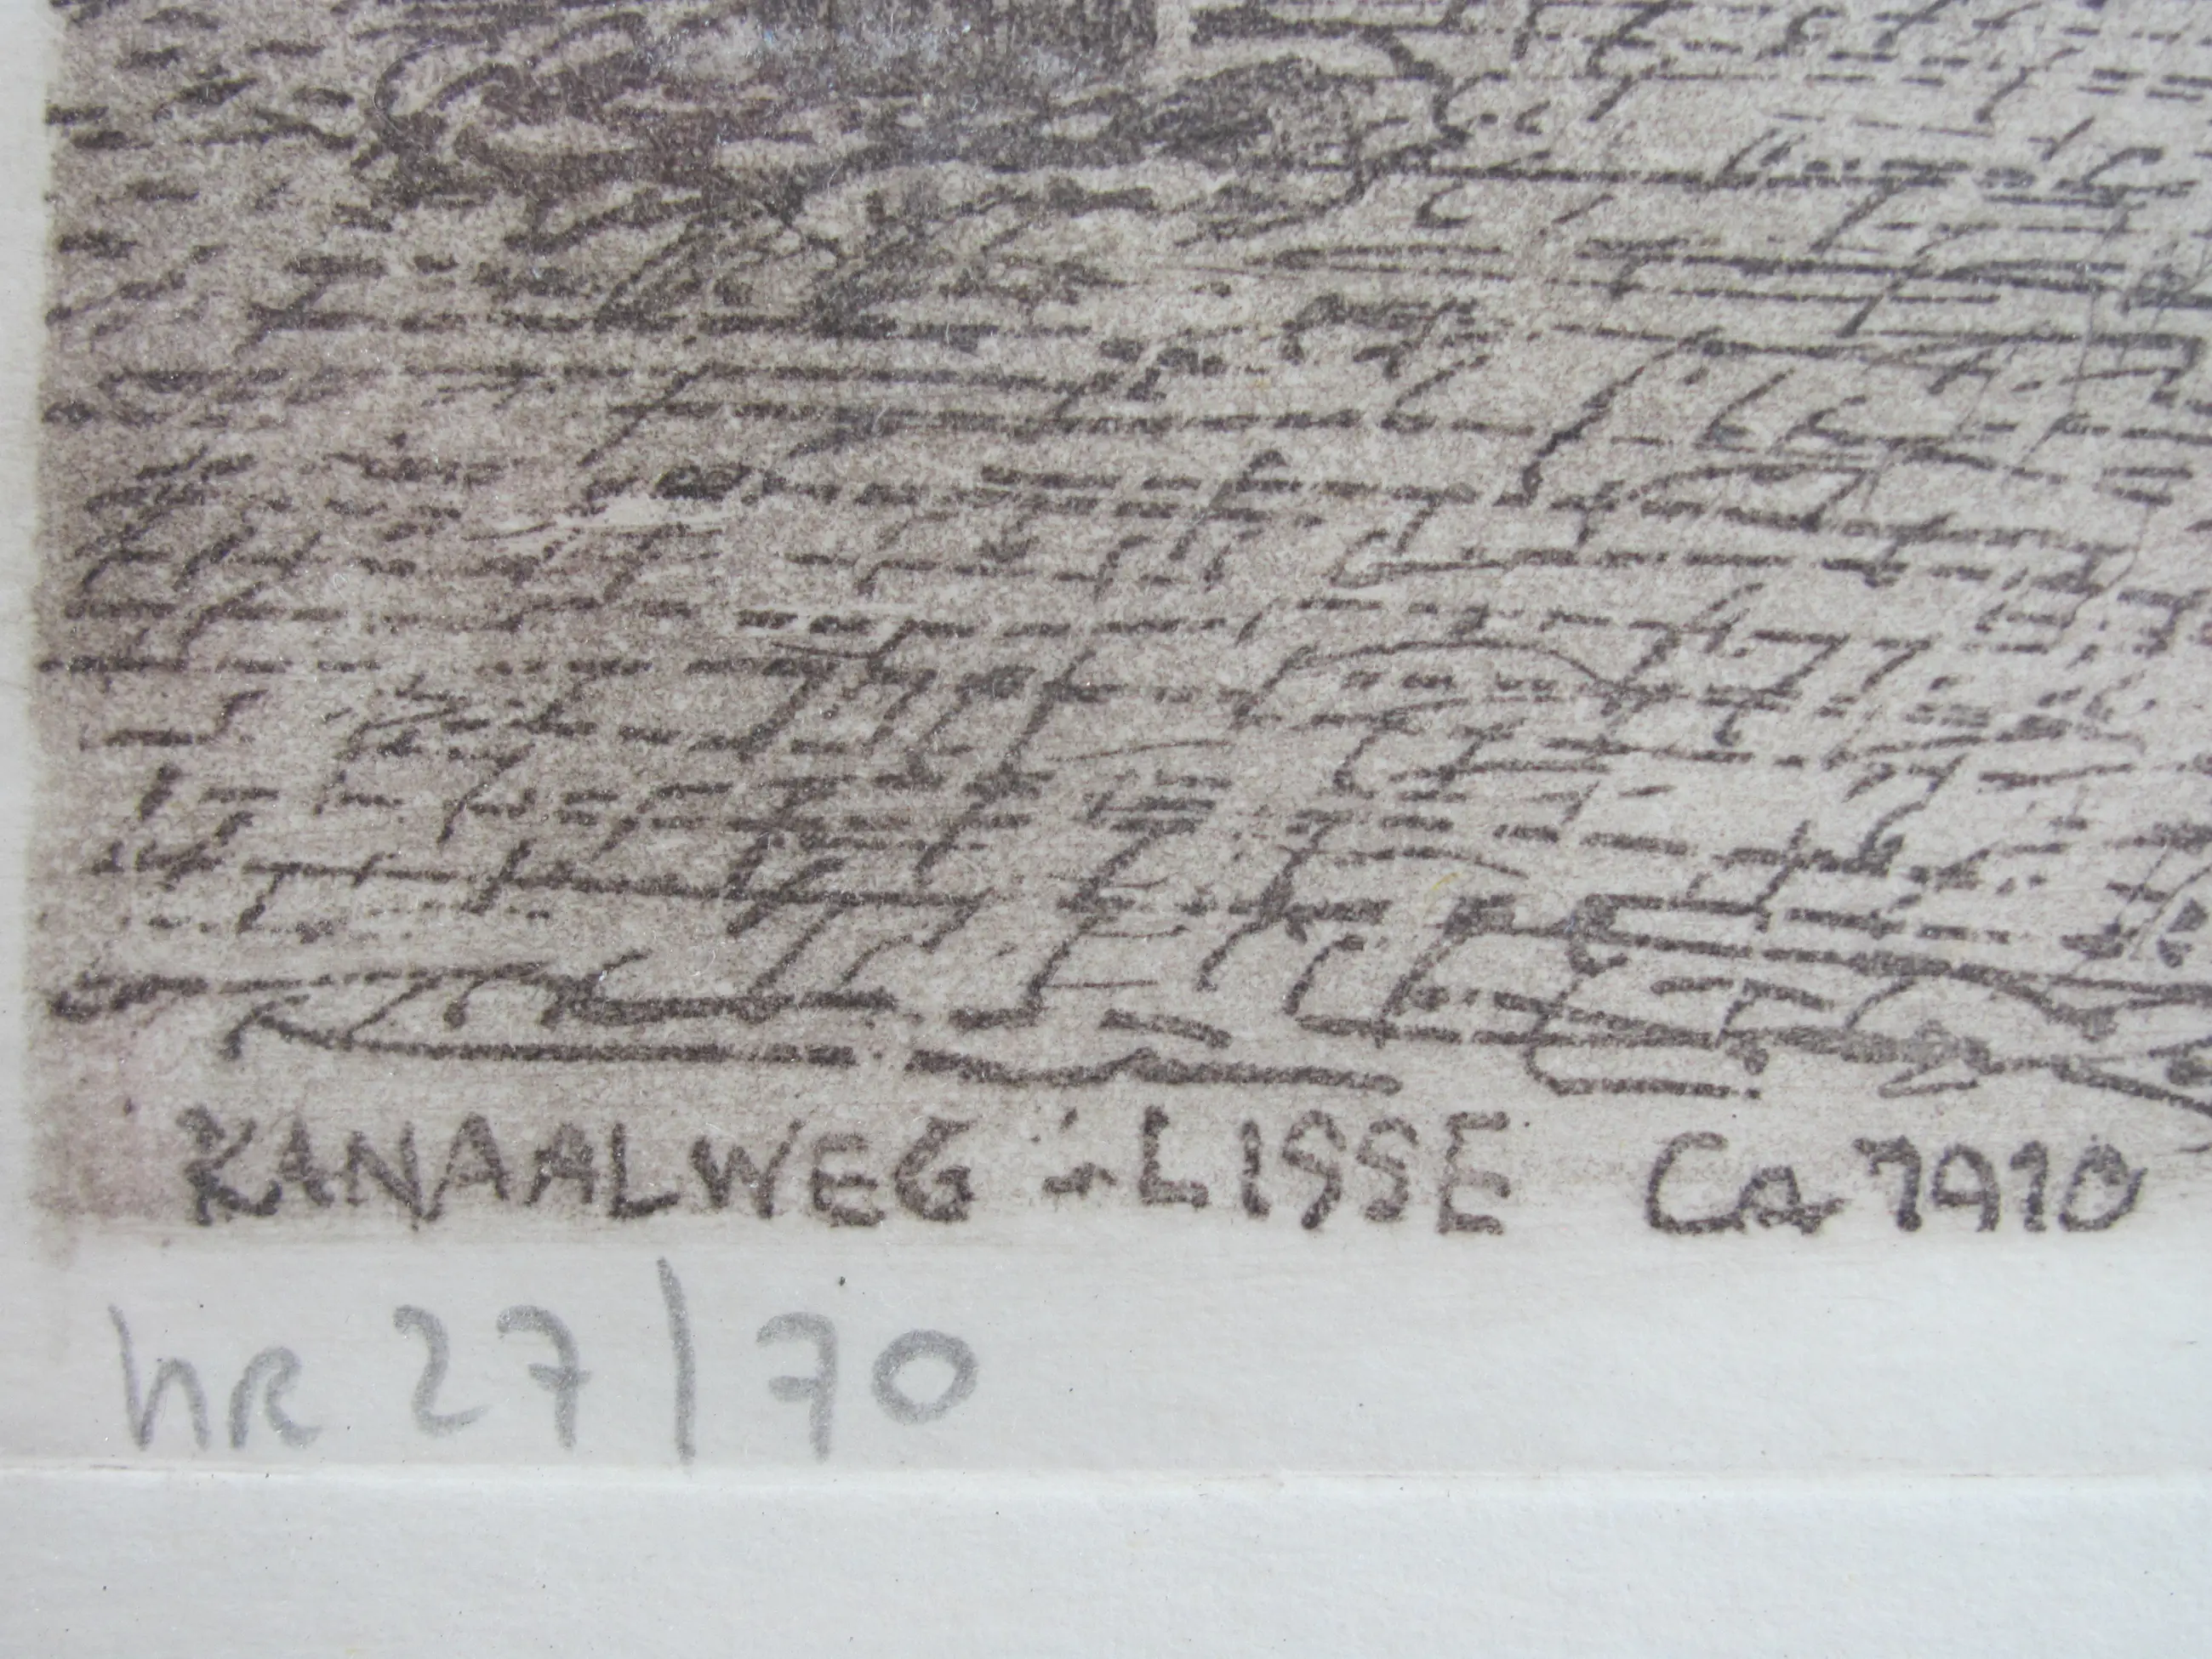 KANAALWEG - LISSE Ca 1910
nR 27/70